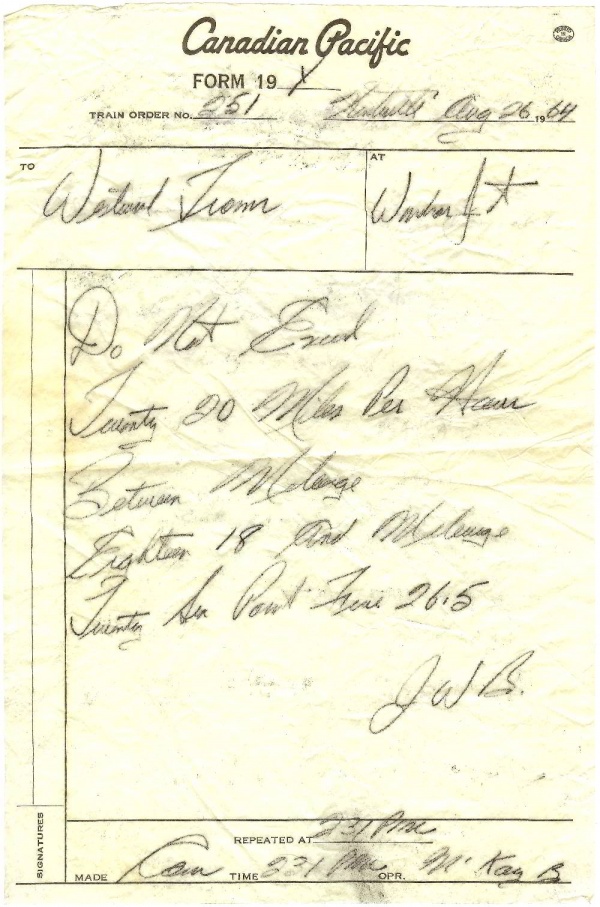 Canadian Pacific
FORM 19 Y
TRAIN ORDER NO. 251 Kentville Aug 26 1964
TO Westward Trains AT Windsor Jct
Do Not Exceed
Twenty 20 Miles Per Hour
Between Mileage
Eighteen 18 And Mileage
Twenty Six Point Five 26.5
J W B.
SIGNATURES
REPEATED AT 231 PM
MADE Com TIME 231 PM OPR. McKay B